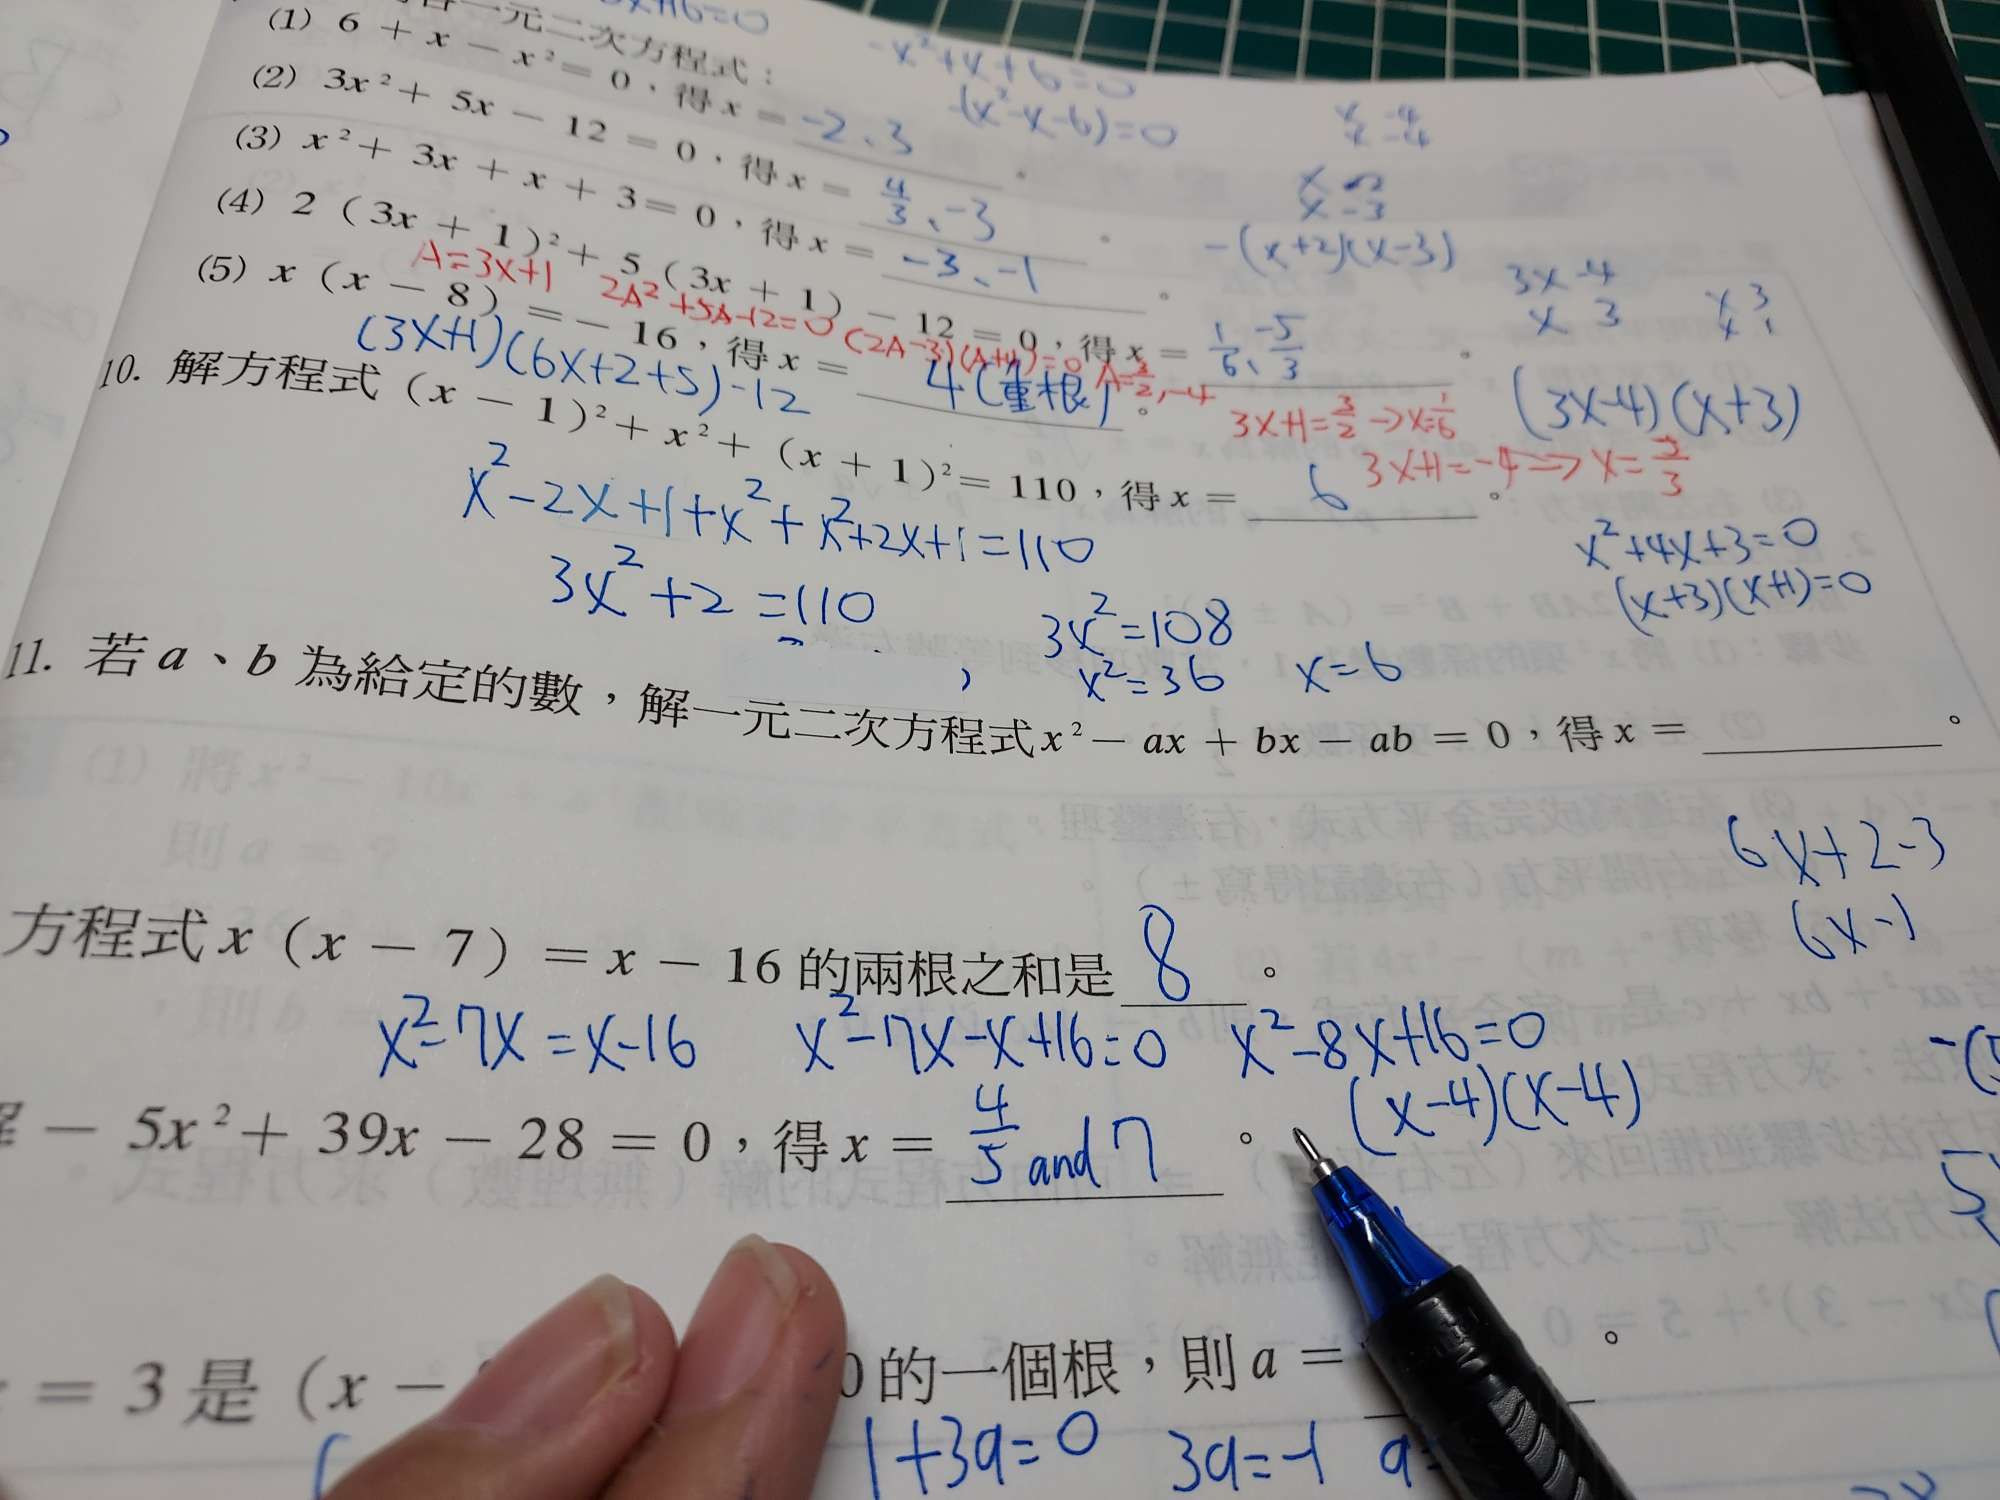 一元二次方程式：
(1) 6 + x - x² = 0，得 x = -2、3。
-x²+x+6=0
-(x²-x-6)=0
x -4
x -4
(2) 3x² + 5x - 12 = 0，得 x = 4/3、-3。
x 2
x -3
-(x+2)(x-3)
(3) x² + 3x + x + 3 = 0，得 x = -3、-1。
3x -4
x 3
x 3
x 1
(4) 2（3x + 1）² + 5（3x + 1）- 12 = 0，得 x = 1/6、-5/3。
A=3x+1 2A²+5A-12=0 (2A-3)(A+4)=0 A=3/2,-4
(5) x（x - 8）= - 16，得 x = 4(重根)。
(3x+1)(6x+2+5)-12
3x+1=3/2 → x=1/6
(3x-4)(x+3)
10. 解方程式（x - 1）² + x² +（x + 1）² = 110，得 x = 6。
x²-2x+1+x²+x²+2x+1=110
x²+4x+3=0
(x+3)(x+1)=0
3x²+2=110
3x²=108
x²=36 x=6
11. 若 a、b 為給定的數，解一元二次方程式 x² - ax + bx - ab = 0，得 x = 。
6x+2-3
6x-1
方程式 x（x - 7）= x - 16 的兩根之和是 8。
x²-7x=x-16 x²-7x-x+16=0 x²-8x+16=0
(x-4)(x-4)
- 5x² + 39x - 28 = 0，得 x = 4/5 and 7。
= 3 是（x - 0 的一個根，則 a = 。
1+3a=0 3a=-1